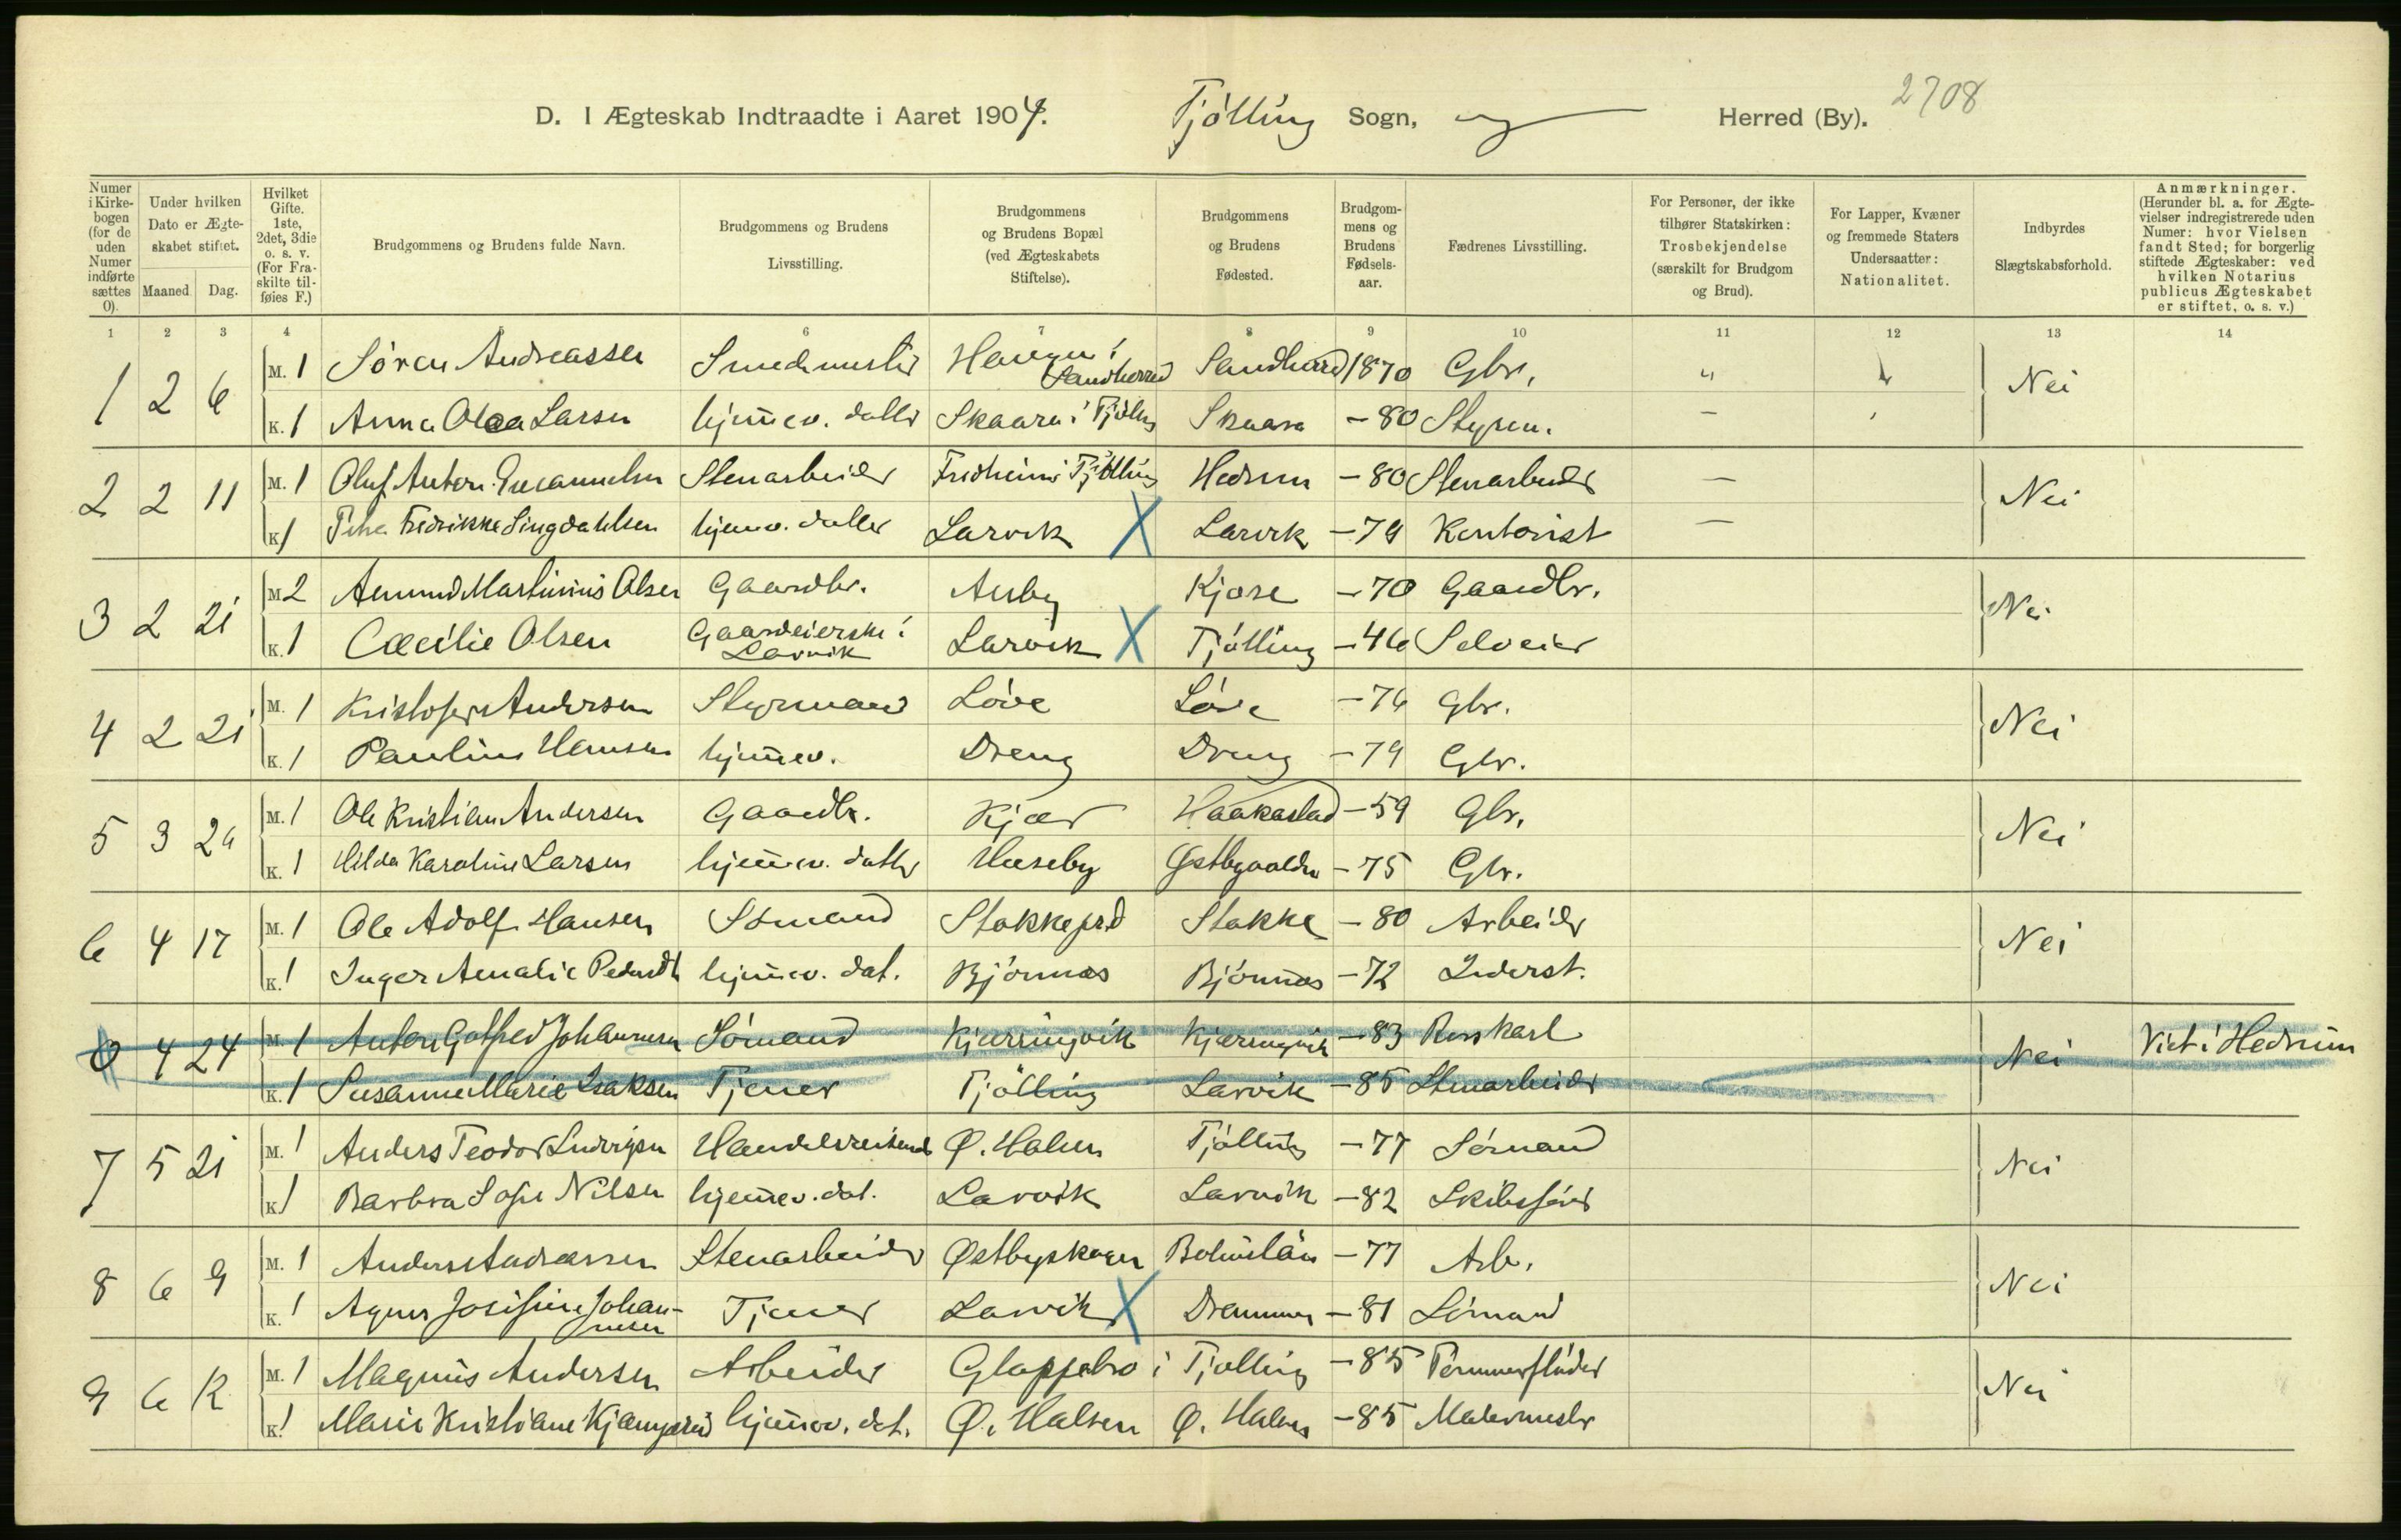 2708
D. I Ægteskab Indtraadte i Aaret 1904. Tjølling Sogn, Herred (By).
Numer i Kirkebogen (for de uden Numer indførte sættes 0).
Under hvilken Dato er Ægteskabet stiftet.
Maaned. Dag.
Hvilket Gifte. 1ste, 2det, 3die o. s. v. (For Fraskilte tilføies F.)
Brudgommens og Brudens fulde Navn.
Brudgommens og Brudens Livsstilling.
Brudgommens og Brudens Bopæl (ved Ægteskabets Stiftelse).
Brudgommens og Brudens Fødested.
Brudgommens og Brudens Fødselsaar.
Fædrenes Livsstilling.
For Personer, der ikke tilhører Statskirken: Trosbekjendelse (særskilt for Brudgom og Brud).
For Lapper, Kvæner og fremmede Staters Undersaatter: Nationalitet.
Indbyrdes Slægtskabsforhold.
Anmærkninger. (Herunder bl. a. for Ægtevielser indregistrerede uden Numer: hvor Vielsen fandt Sted; for borgerlig stiftede Ægteskaber: ved hvilken Notarius publicus Ægteskabet er stiftet, o. s. v.)
1 2 3 4 5 6 7 8 9 10 11 12 13 14
1 2 6 M. 1 Søren Andreassen Smedmester Haugen i Sandherred Sandherred 1870 Gbr. " Nei
K. 1 Anna Olea Larsen hjemmev. datter Skaara i Tjølling Skaara -80 Styrm.
2 2 11 M. 1 Oluf Anton Stenarbeider Fridheim i Tjølling Hedrum -80 Stenarbeider — Nei
K. 1 Fredrikke Lingdahlsen hjemmev. datter Larvik X Larvik -79 Kontorist —
3 2 21 M. 2 Amund Martinius Olsen Gaardbr. Auby Kjose -70 Gaardbr. Nei
K. 1 Cæcilie Olsen Gaardeierske i Larvik Larvik X Tjølling -46 Selveier
4 2 21 M. 1 Kristofer Andersen Styrmand Løve Løve -76 Gbr. Nei
K. 1 Pauline Hansen hjemmev. Dreng Dreng -79 Gbr.
5 3 24 M. 1 Ole Kristian Andersen Gaardbr. Kjær Haakastad -59 Gbr. Nei
K. 1 Hilda Karoline Larsen hjemmev. datter Huseby -75 Gbr.
6 4 17 M. 1 Ole Adolf Hansen Sømand Stokke prd Stokke -80 Arbeider Nei
K. 1 Inger Amalie Pedersdt hjemmev. dat. Bjønnes Bjønnes -72 Inderst.
0 4 24 M. 1 Anton Gotfred Johannesen Sømand Kjærringvik Kjærringvik -83 Nei Viet i Hedrum
K. 1 Susanne Marie Isaksen Tjener Tjølling Larvik -85 Stenarbeider
7 5 21 M. 1 Anders Teodor Ludvigsen Handelsreisende Ø. Halsen Tjølling -77 Sømand Nei
K. 1 Barbra Sofie Nilsen hjemmev. dat. Larvik Larvik -82 Skibsfører
8 6 9 M. 1 Anders Andreassen Stenarbeider Østbyskogen Bohuslän -77 Arb. Nei
K. 1 Agnes Josefine Johannesen Tjener Larvik X Drammen -81 Sømand
9 6 12 M. 1 Magnus Andersen Arbeider Gloppebro i Tjølling -85 Tømmerfløder Nei
K. 1 Marie Kristiane hjemmev. dat. Ø. Halsen Ø. Halsen -85 Malermester